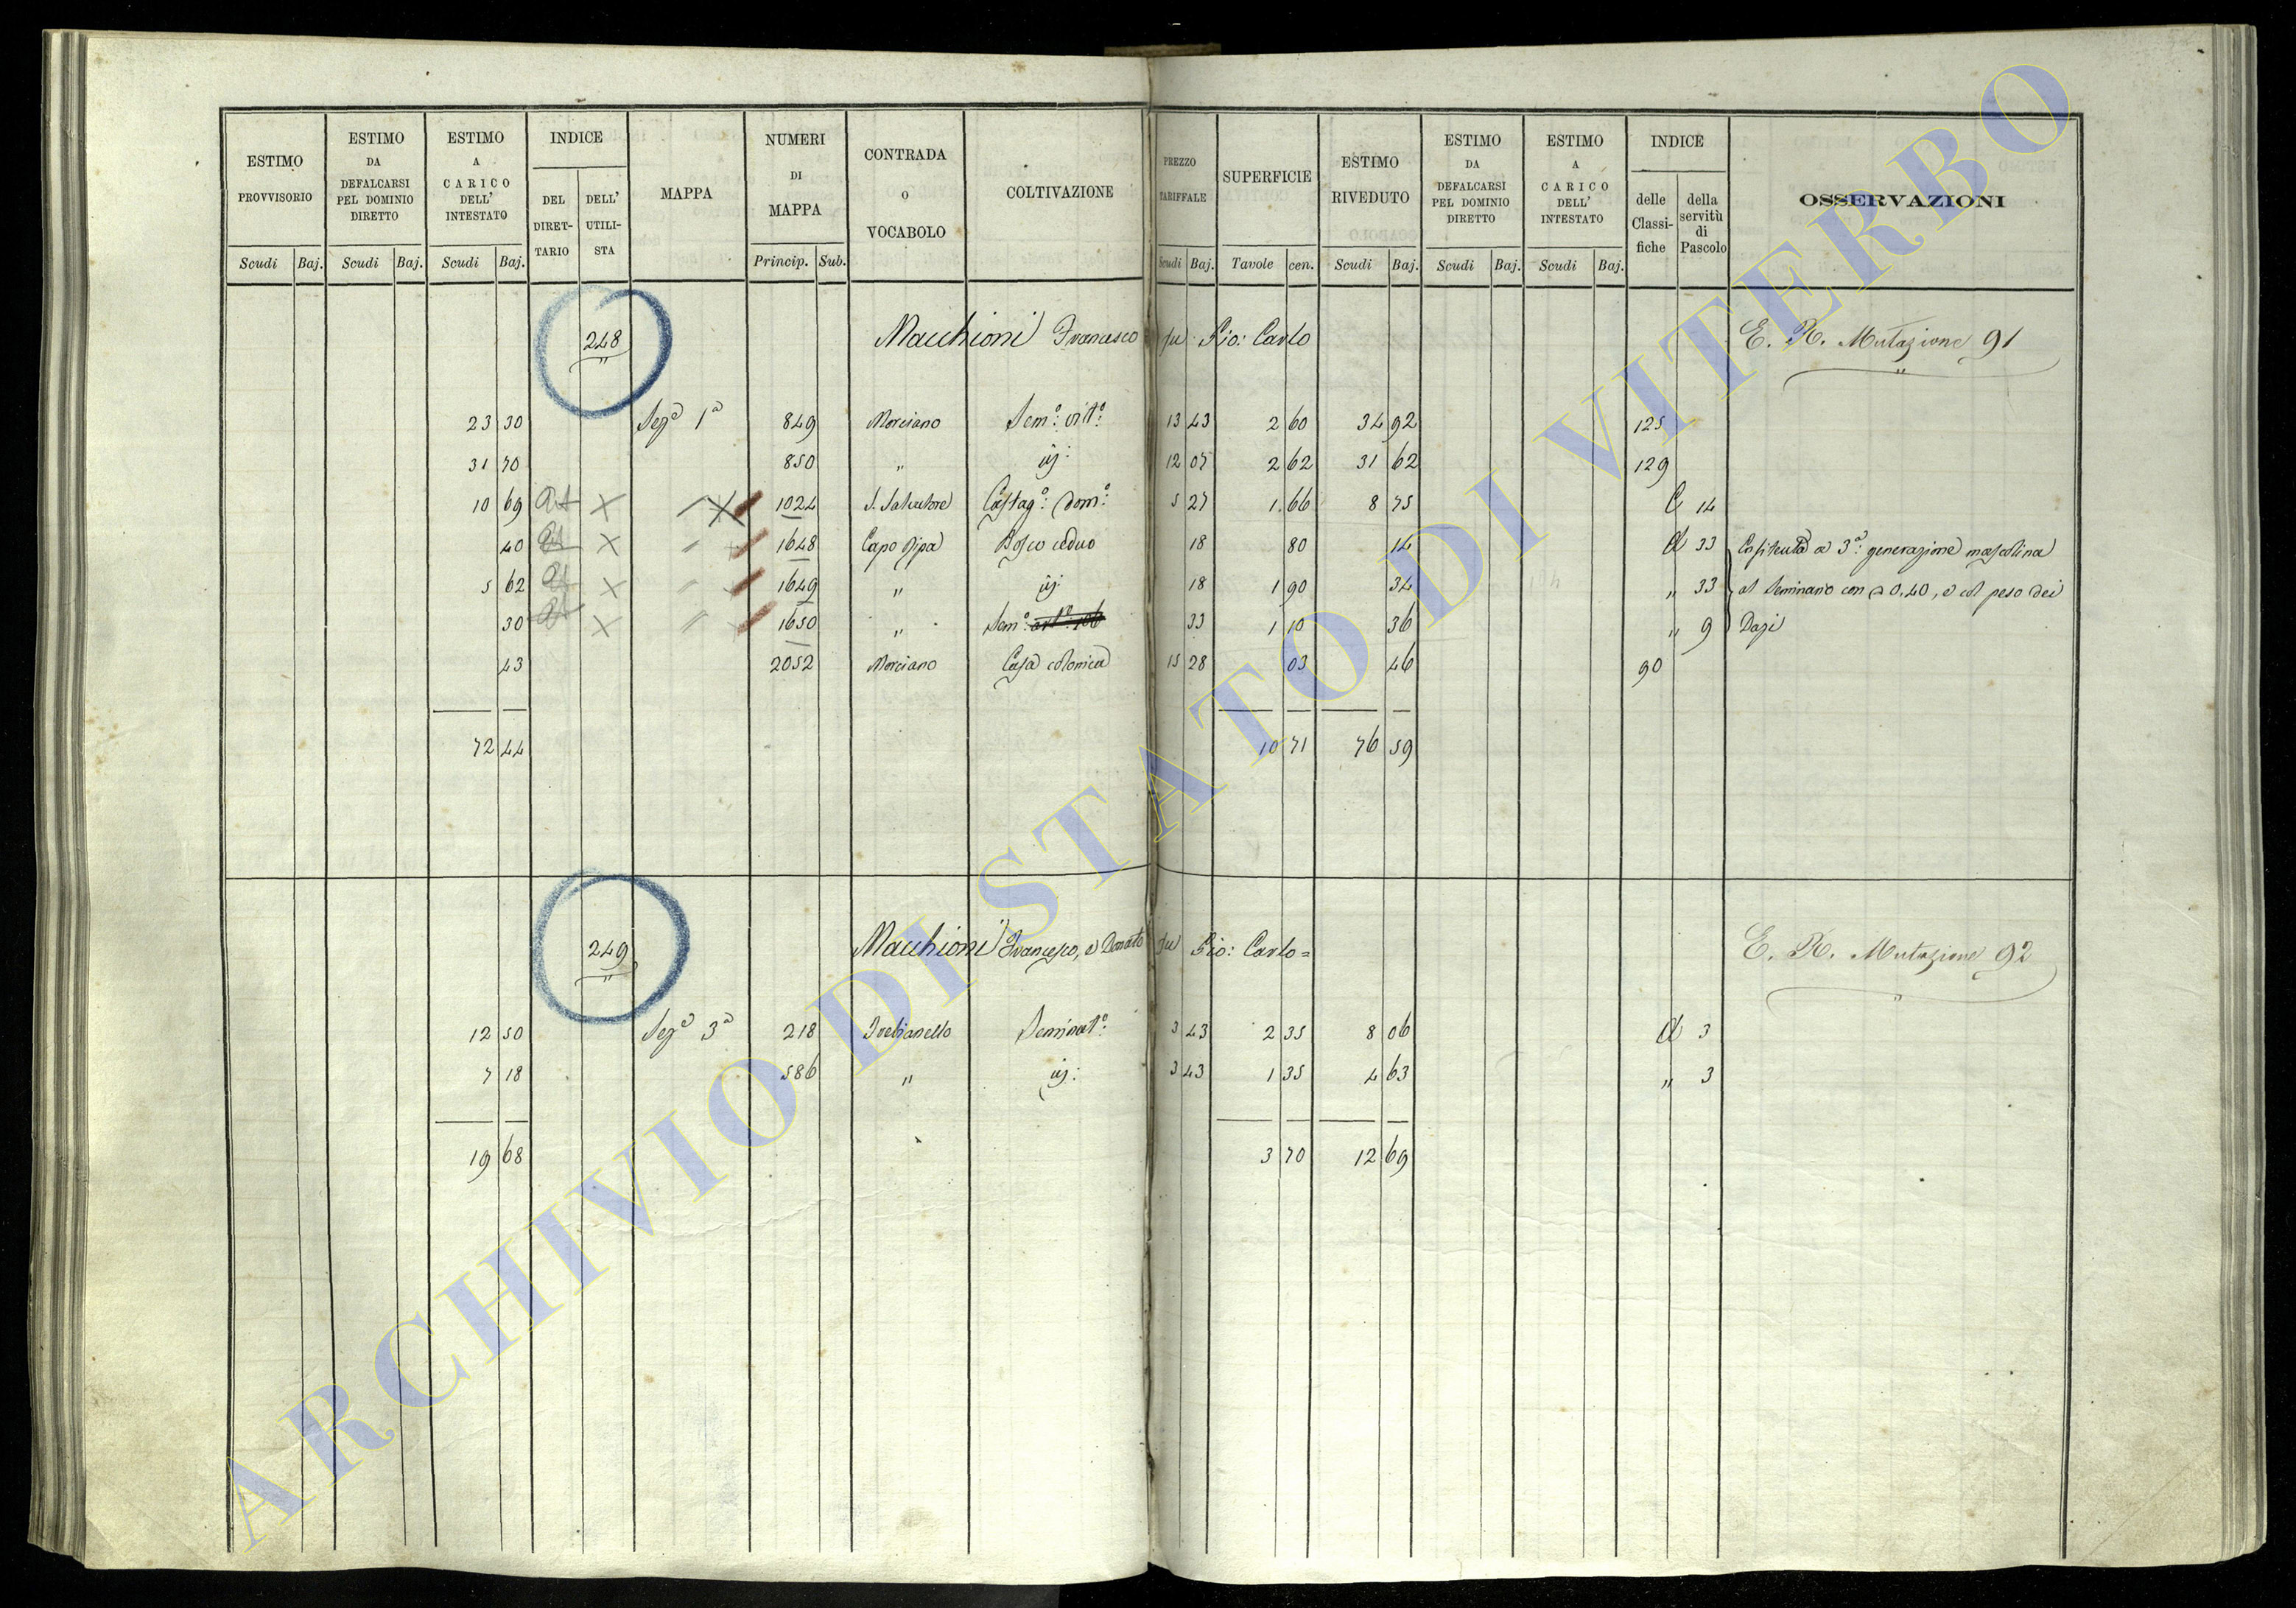 ESTIMO PROVVISORIO Scudi Baj.
ESTIMO DA DEFALCARSI PEL DOMINIO DIRETTO Scudi Baj.
ESTIMO A CARICO DELL' INTESTATO Scudi Baj.
INDICE DEL DIRET-TARIO DELL' UTILI-STA
MAPPA
NUMERI DI MAPPA Princip. Sub.
CONTRADA O VOCABOLO
COLTIVAZIONE
PREZZO TARIFFALE Scudi Baj.
SUPERFICIE Tavole cen.
ESTIMO RIVEDUTO Scudi Baj.
ESTIMO DA DEFALCARSI PEL DOMINIO DIRETTO Scudi Baj.
ESTIMO A CARICO DELL' INTESTATO Scudi Baj.
INDICE delle Classi-fiche della servitù di Pascolo
OSSERVAZIONI
248 Macchioni Francesco fu Gio: Carlo E. R. Mutazione 91
23 30 Sez.a 1a 849 Morciano Sem.o vit.o 13 43 2 60 34 92 125
31 70 850 " id: 12 07 2 62 31 62 129
10 69 X X 1024 S. Salvatore Castag.o dom.o 5 27 1.66 8 75 C 14
40 X " 1648 Capo Ripa Bosco ceduo 18 80 14 d 33 Costituita a 3a: generazione mascolina
5 62 X " 1649 " id: 18 1 90 34 " 33 al Seminario con 0,40, e col peso dei
30 X " 1650 " Sem.o 33 1 10 36 " 9 Dazi
43 2052 Morciano Casa colonica 15 28 03 46 90
72 44 10 71 76 59
249 Macchioni Francesco, e Donato fu Gio: Carlo = E. R. Mutazione 92
12 50 Sez.a 3a 218 Trebianello Seminat.o 3 43 2 35 8 06 d 3
7 18 586 " id: 3 43 1 35 4 63 " 3
19 68 3 70 12 69
ARCHIVIO DI STATO DI VITERBO